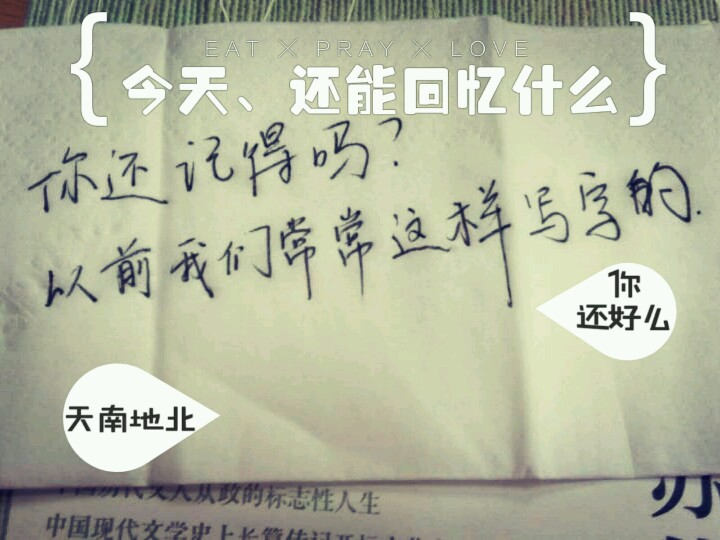 EAT × PRAY × LOVE
{今天、还能回忆什么}
你还记得吗?
以前我们常常这样写字的.
你
还好么
天南地北
中国历代文人从政的标志性人生